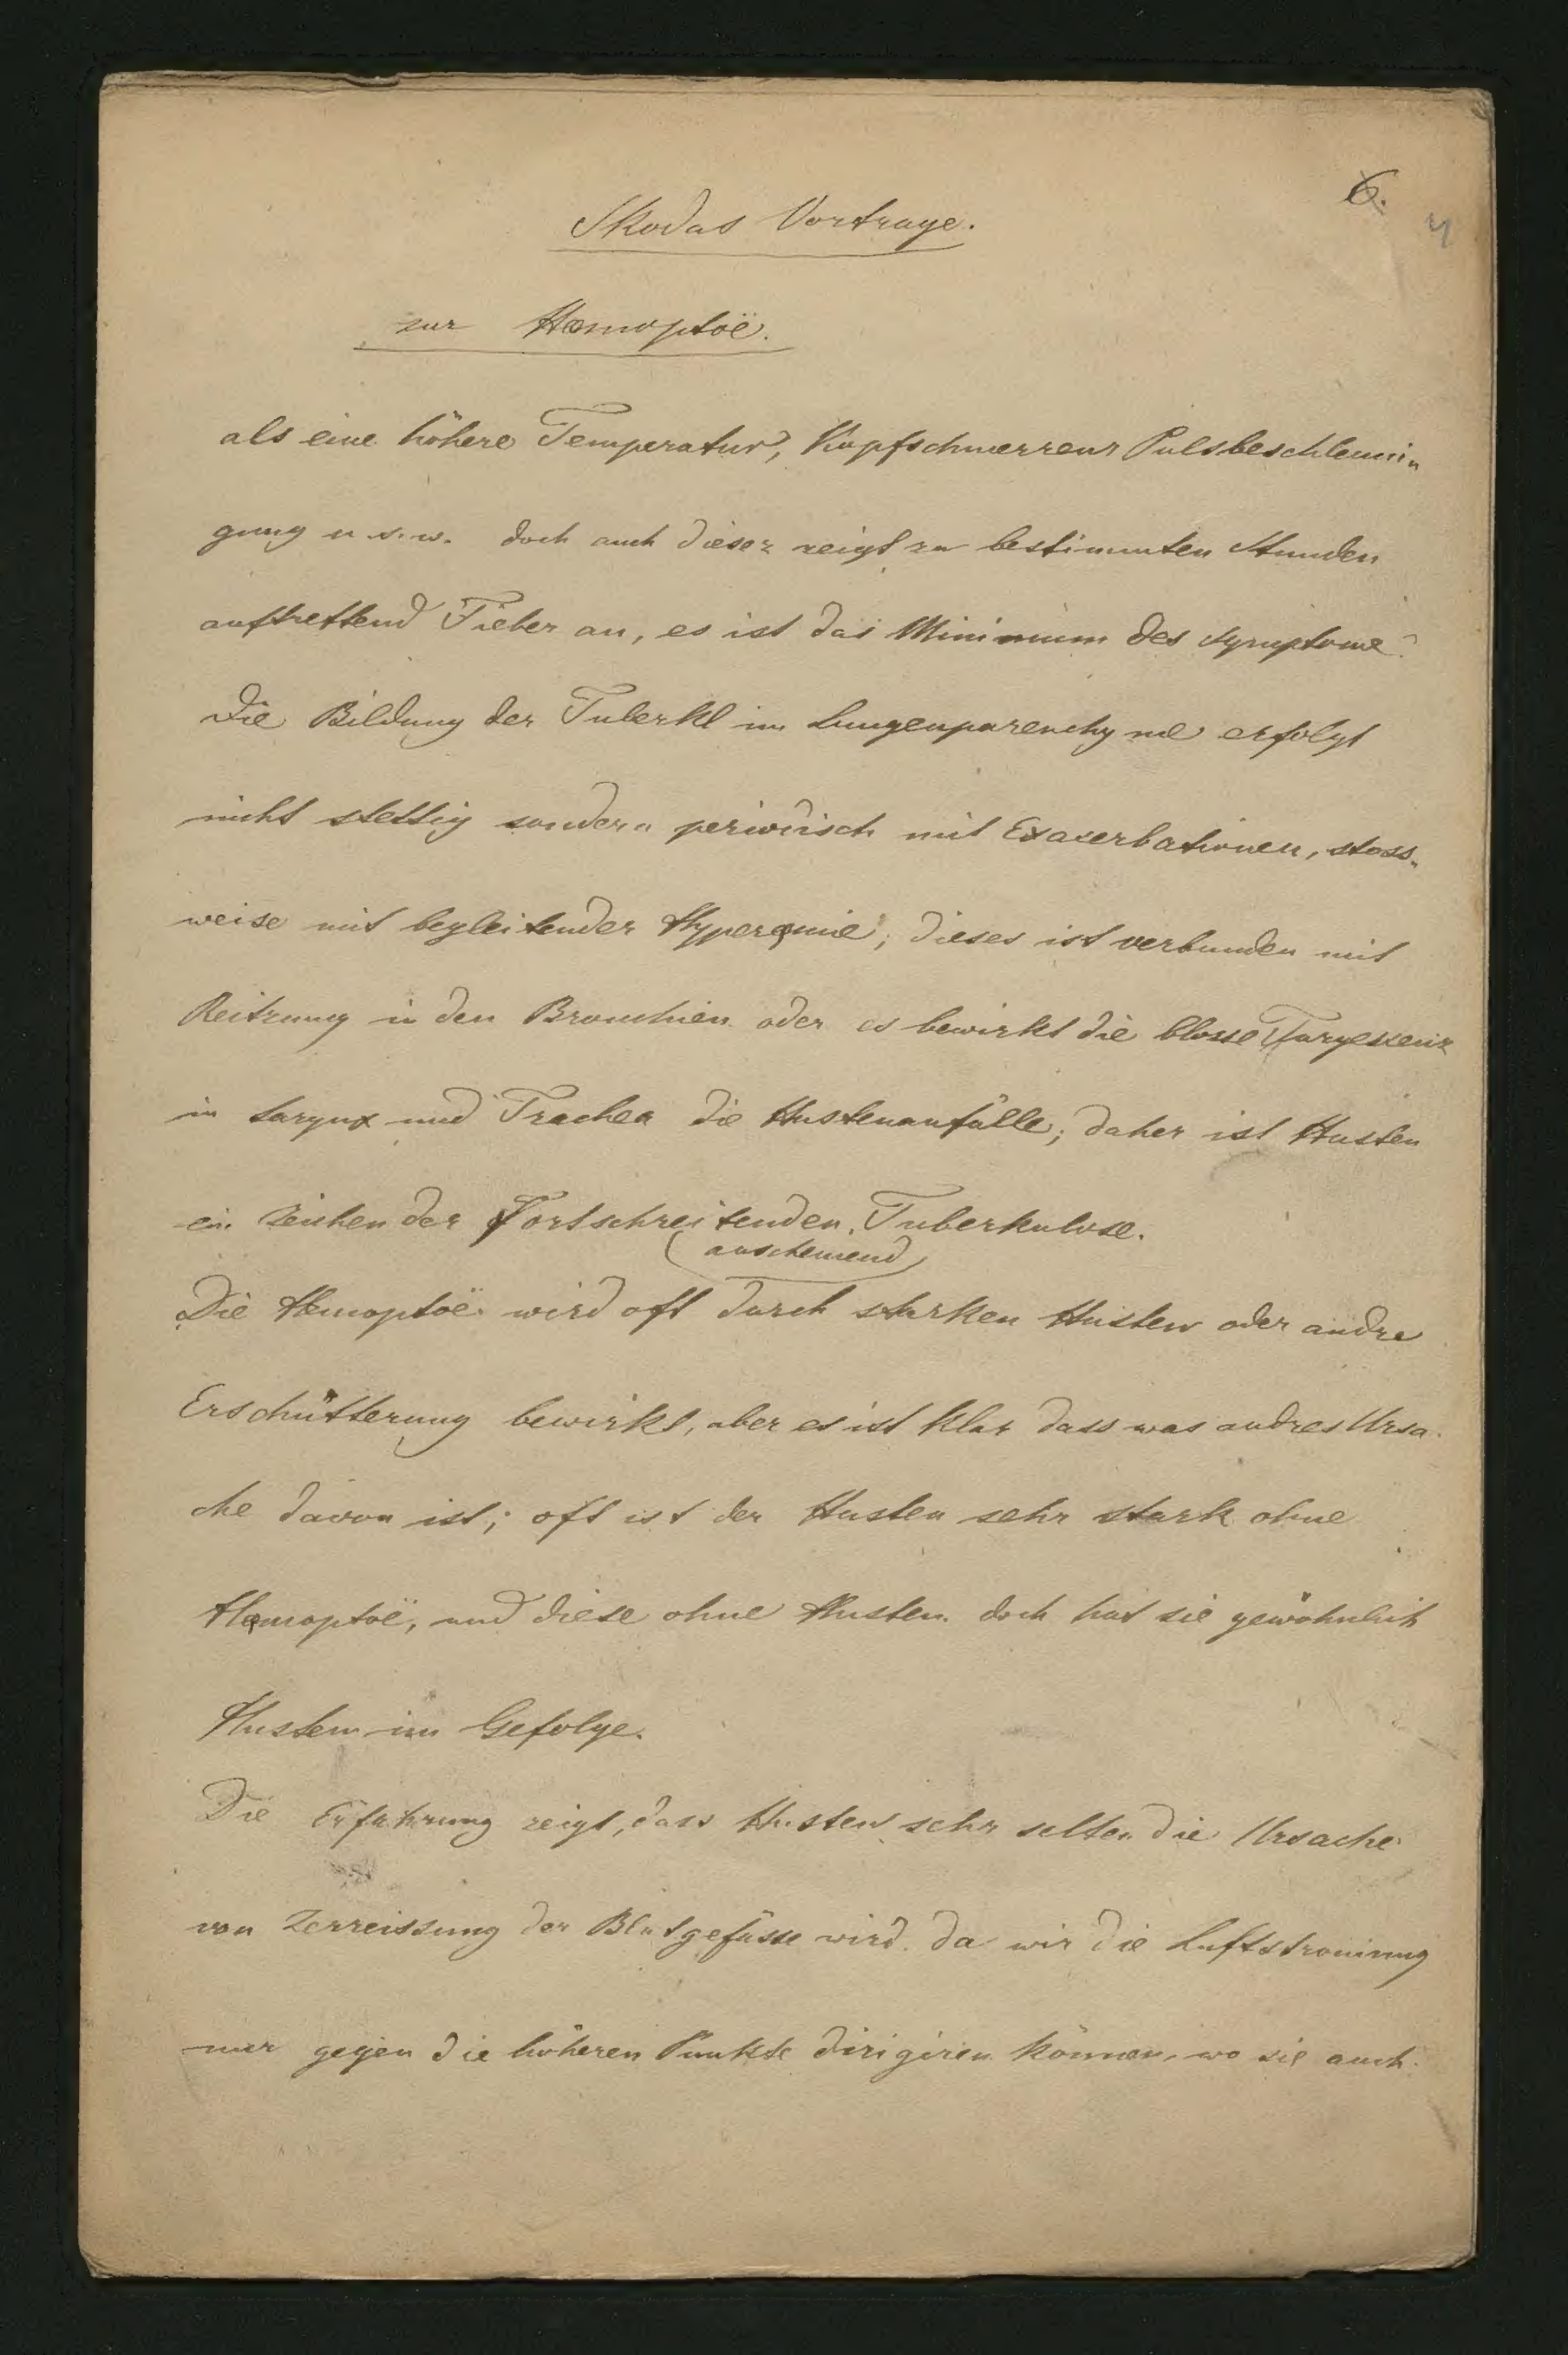 6.
4
Skodas Vortrage.
zur Hæmoptoë.
als eine höhere Temperatur, Kopfschmerzens Pulsbeschleuni„
gung u. s. w. doch auch dieses zeigt zu bestimmten Stunden
auftrettend Fieber an, es ist das Minimum des Symptome
Die Bildung der Tuberkl im Lungenparenchyme erfolgt
nicht stettig sondern periodisch mit Exacerbationen, stoss„
weise mit begleitender Hyperęmie; dieses ist verbunden mit
Reitzung in den Bronchien oder es bewirkt die blosse Turgeszenz
in Larynx und Trachea die Hustenanfälle; daher ist Husten
ein Zeichen der Fortschreitenden Tuberkulose.
(anscheinend)
Die Hęmoptoë wird oft durch starken Husten oder andre
Erschütterung bewirkt, aber es ist klar dass was andres Ursa
che davon ist; oft ist der Husten sehr stark ohne
Hęmoptoë, und diese ohne Husten. doch hat sie gewöhnlich
Husten im Gefolge.
Die Erfahrung zeigt, dass Husten sehr selten die Ursache
von Zerreissung der Blutgefässe wird. da wir die Luftströmung
nur gegen die höheren Punkte dirigiren können, wo sie auch